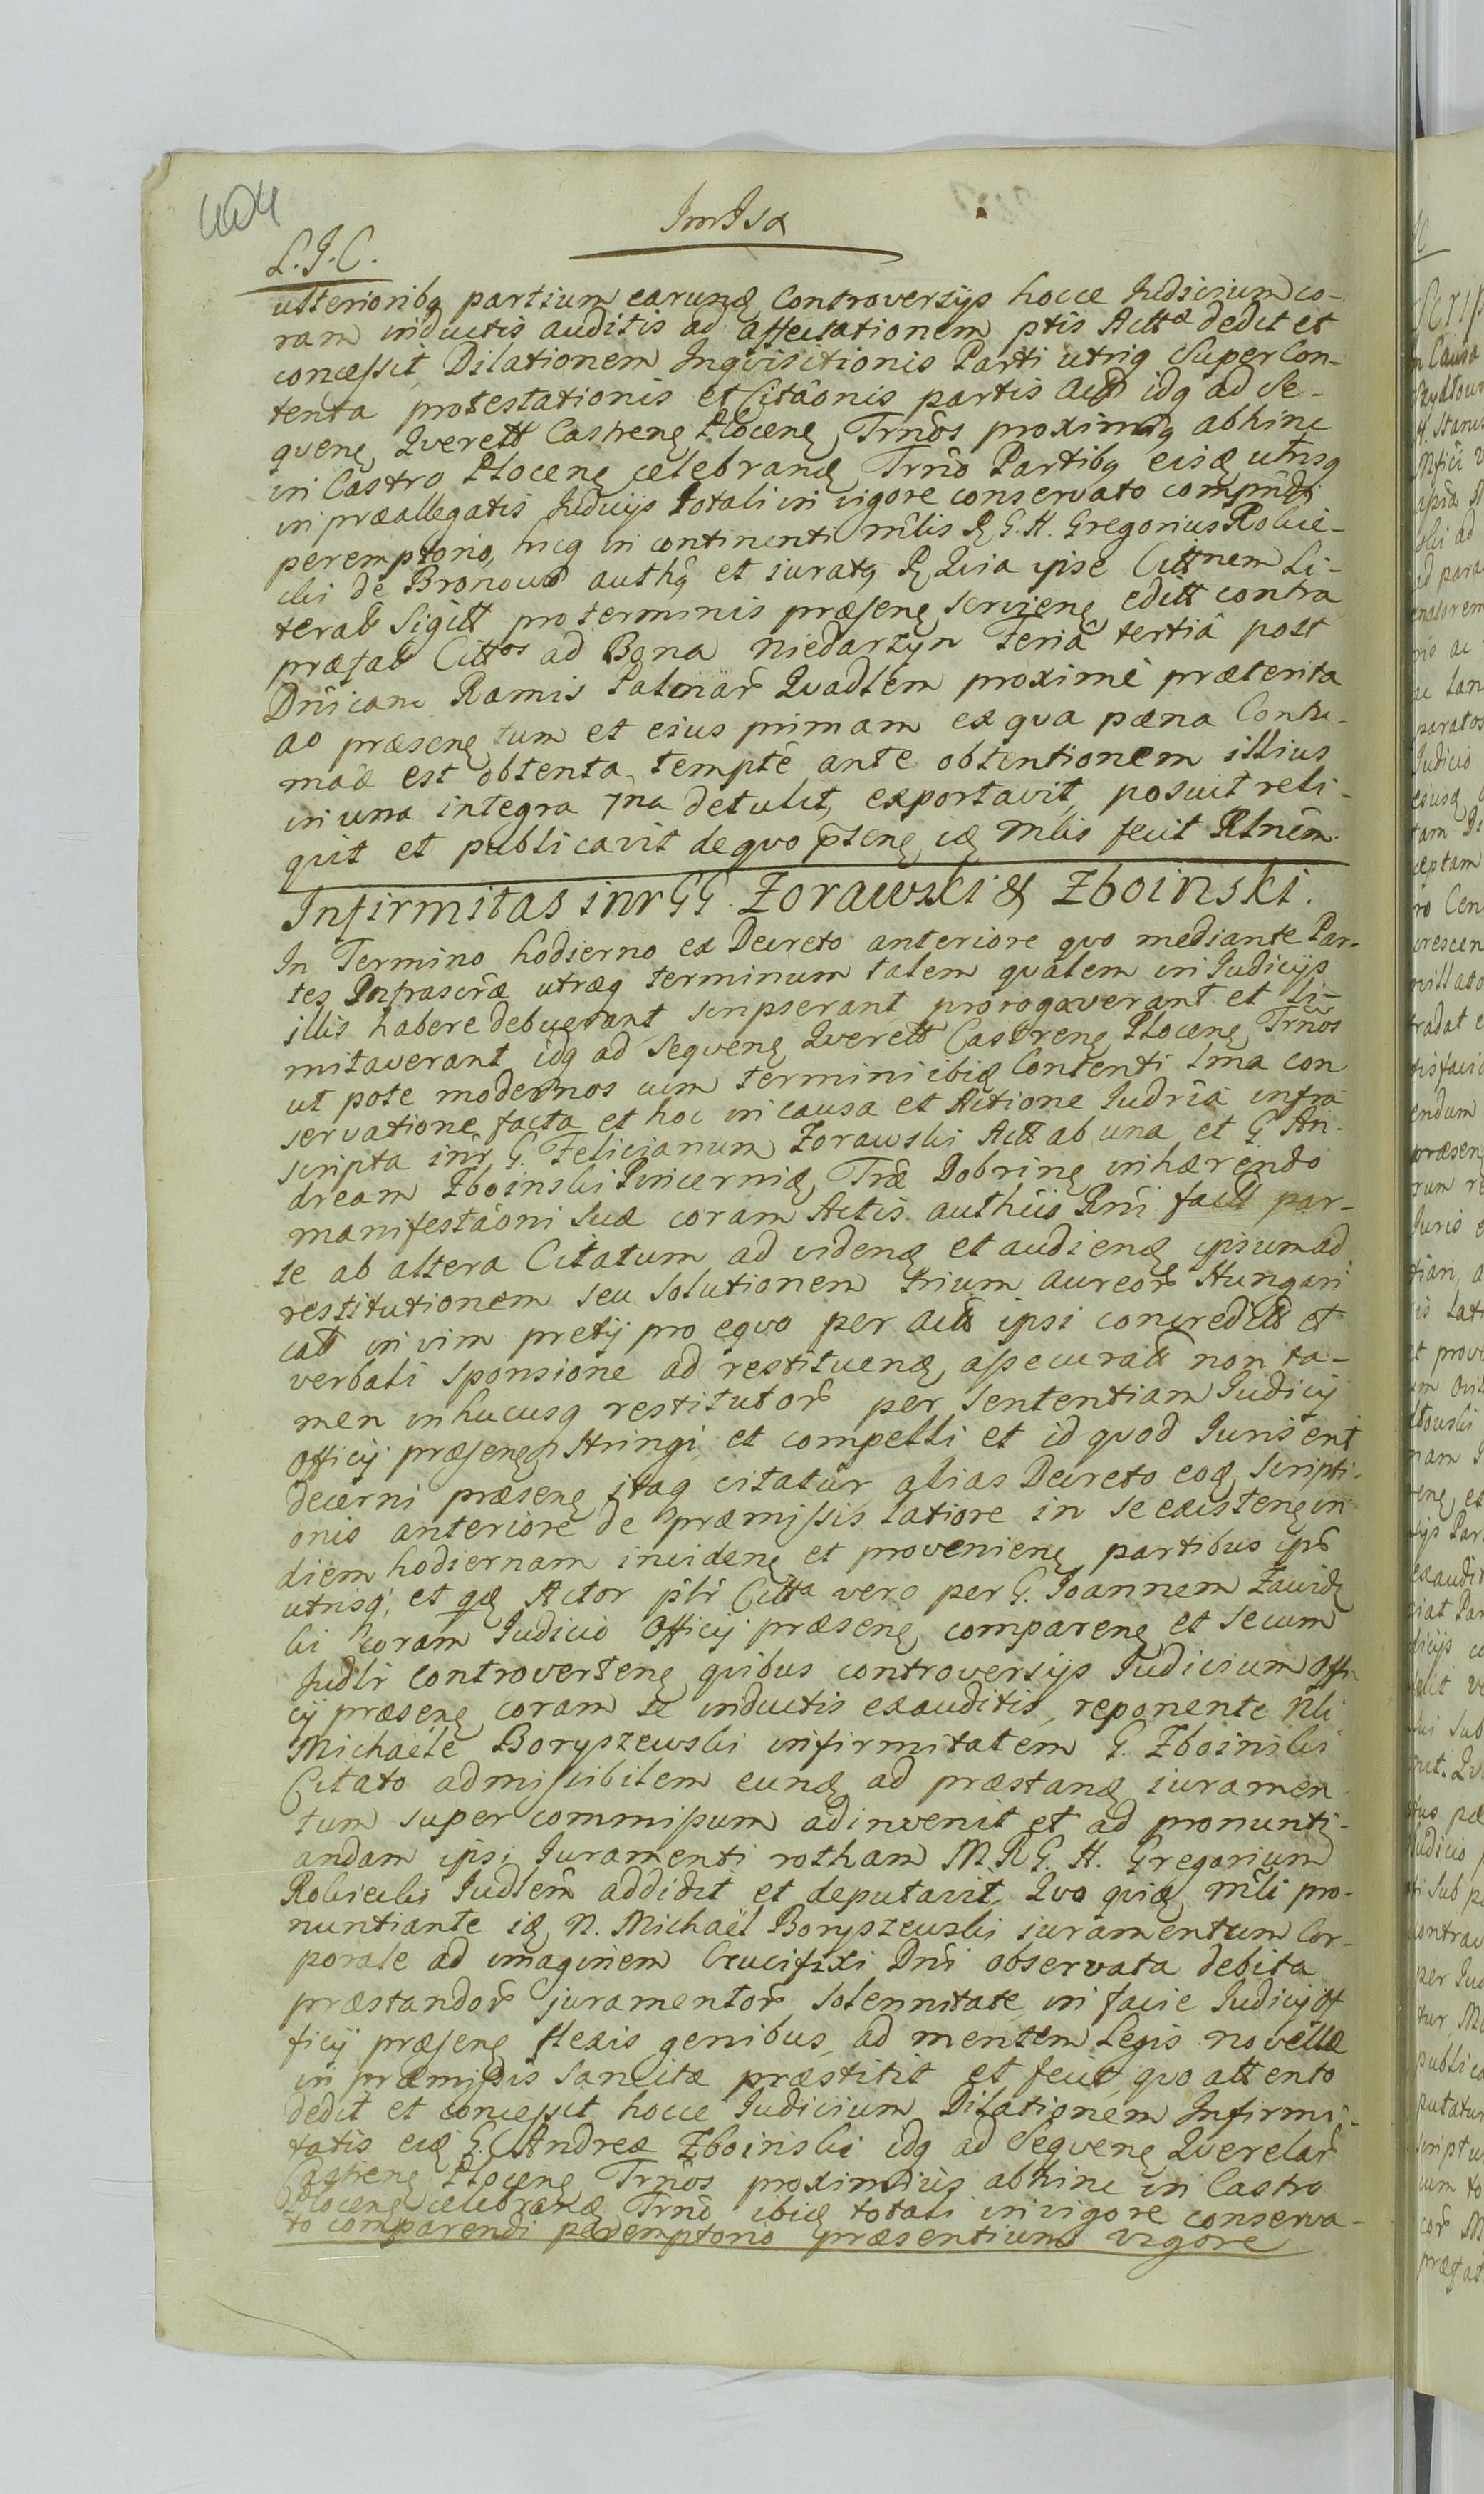 404
L.J.C.
ulterioribq partium earunq Controversijs hocce Judicium co-
ram inductis auditis ad affectationem ptis Actta dedit et
concessit Dilationem Inqvisitionis Parti utriq super Con-
tenta protestationis et Citãonis partis idq ad Se-
qvenq Qverell Castrenq Plocenq Trnõs proximq abhinc
in Castro Plocenq celebranq Trnõ Partibq eisq utrisq
in præallegatis Judicijs totali in vigore conservato
peremptorio, hicq in continenti mlis G.H. Gregorius Robie-
cki de Bronowo authq et juratq Qvia ipse Cittnem Li-
terat Sigill pro terminis præsenq servienq edit contra
præfat Cittos ad Bona Niedarzyn Feriâ tertiâ post
Dnicam Ramis Palmar Qvadlem proxime præterita
ad præsenq tum et eius primam ex qva pæna Contu-
est obtenta tempte ante obtentionem illius
in una integra 7na detulit, exportavit, posuit reli-
quit et publicavit de qvo idq Mlis fecit Rlnem
Infirmitas inr GG. Zorawski & Zboinski.
In Termino hodierno ex Decreto anteriore qvo mediante Par-
tes Infrascræ utræq terminum talem qvalem in Judicijs
illis habere debuerant scripserant prorogaverant et Li-
mitaverant idq ad Seqvenq Qverell Castrenq Plocenq Trnõs
ut pote modernos cum termini ibiq Contenti lma con
servatione facta et hoc in causa et Actione Judria infra
scripta inr G. Felicianum Zorawski Act ab una et G. An-
dream Zboinski Pincerniq Træ Dobrinq inhærendo
manifestãoni suæ coram Actis authiis Rni fact par-
te ab altera Citatum ad videnq et audienq ipsum ad
restitutionem seu solutionem trium aureor Hungari
call in vim pretij pro eqvo per Act ipsi concredit et
verbali sponsione ad restituenq assecurat non ta-
men in hucusq restitutor per sententiam Judicij
Officij præsenq Stringi et compelli et id quod Juris erit
decerni præsenq itaq citatur alias Decreto eoq scripti-
onis anteriore de præmissis latiore in se existenq in
diem hodiernam incidenq et provenienq partibus ips
utrisq, et Actor Citta vero per G. Joannem Zawidz
ki coram Judicio Officij præsenq comparenq et secum
Judlr controvertenq qvibus controversijs Judicium offi
cij præsenq coram se inductis exauditis, reponente Nli
Michaële Boryszewski infirmitatem G. Zboinski
Citato admissibilem eunq ad præstanq iuramen
tum super commissum adinvenit et ad pronunti-
andam ipsi Juramenti rotham M.R.G. H. Gregorium
Robiecki Judlem addidit et deputavit Qvo qviq mli pro-
nuntiante iq N. Michaël Boryszewski iuramentum Cor-
porale ad imaginem Crucifixi Dni observata debita
præstandor juramentor solennitate in facie Judicij Of
ficij præsenq flexis genibus ad mentem Legis novellæ
in præmissis sancitæ præstitit et fecit qvo attento
dedit et concessit hocce Judicium Dilationem Infirmi-
tatis eiq G. Andreæ Zboinski idq ad Seqvenq Qverelar
Castrenq Plocenq Trnõs proximius abhinc in Castro
Plocenq celebranq Trnõ ibiq totali in vigore conserva-
to comparendi peremptorio præsentium vigore